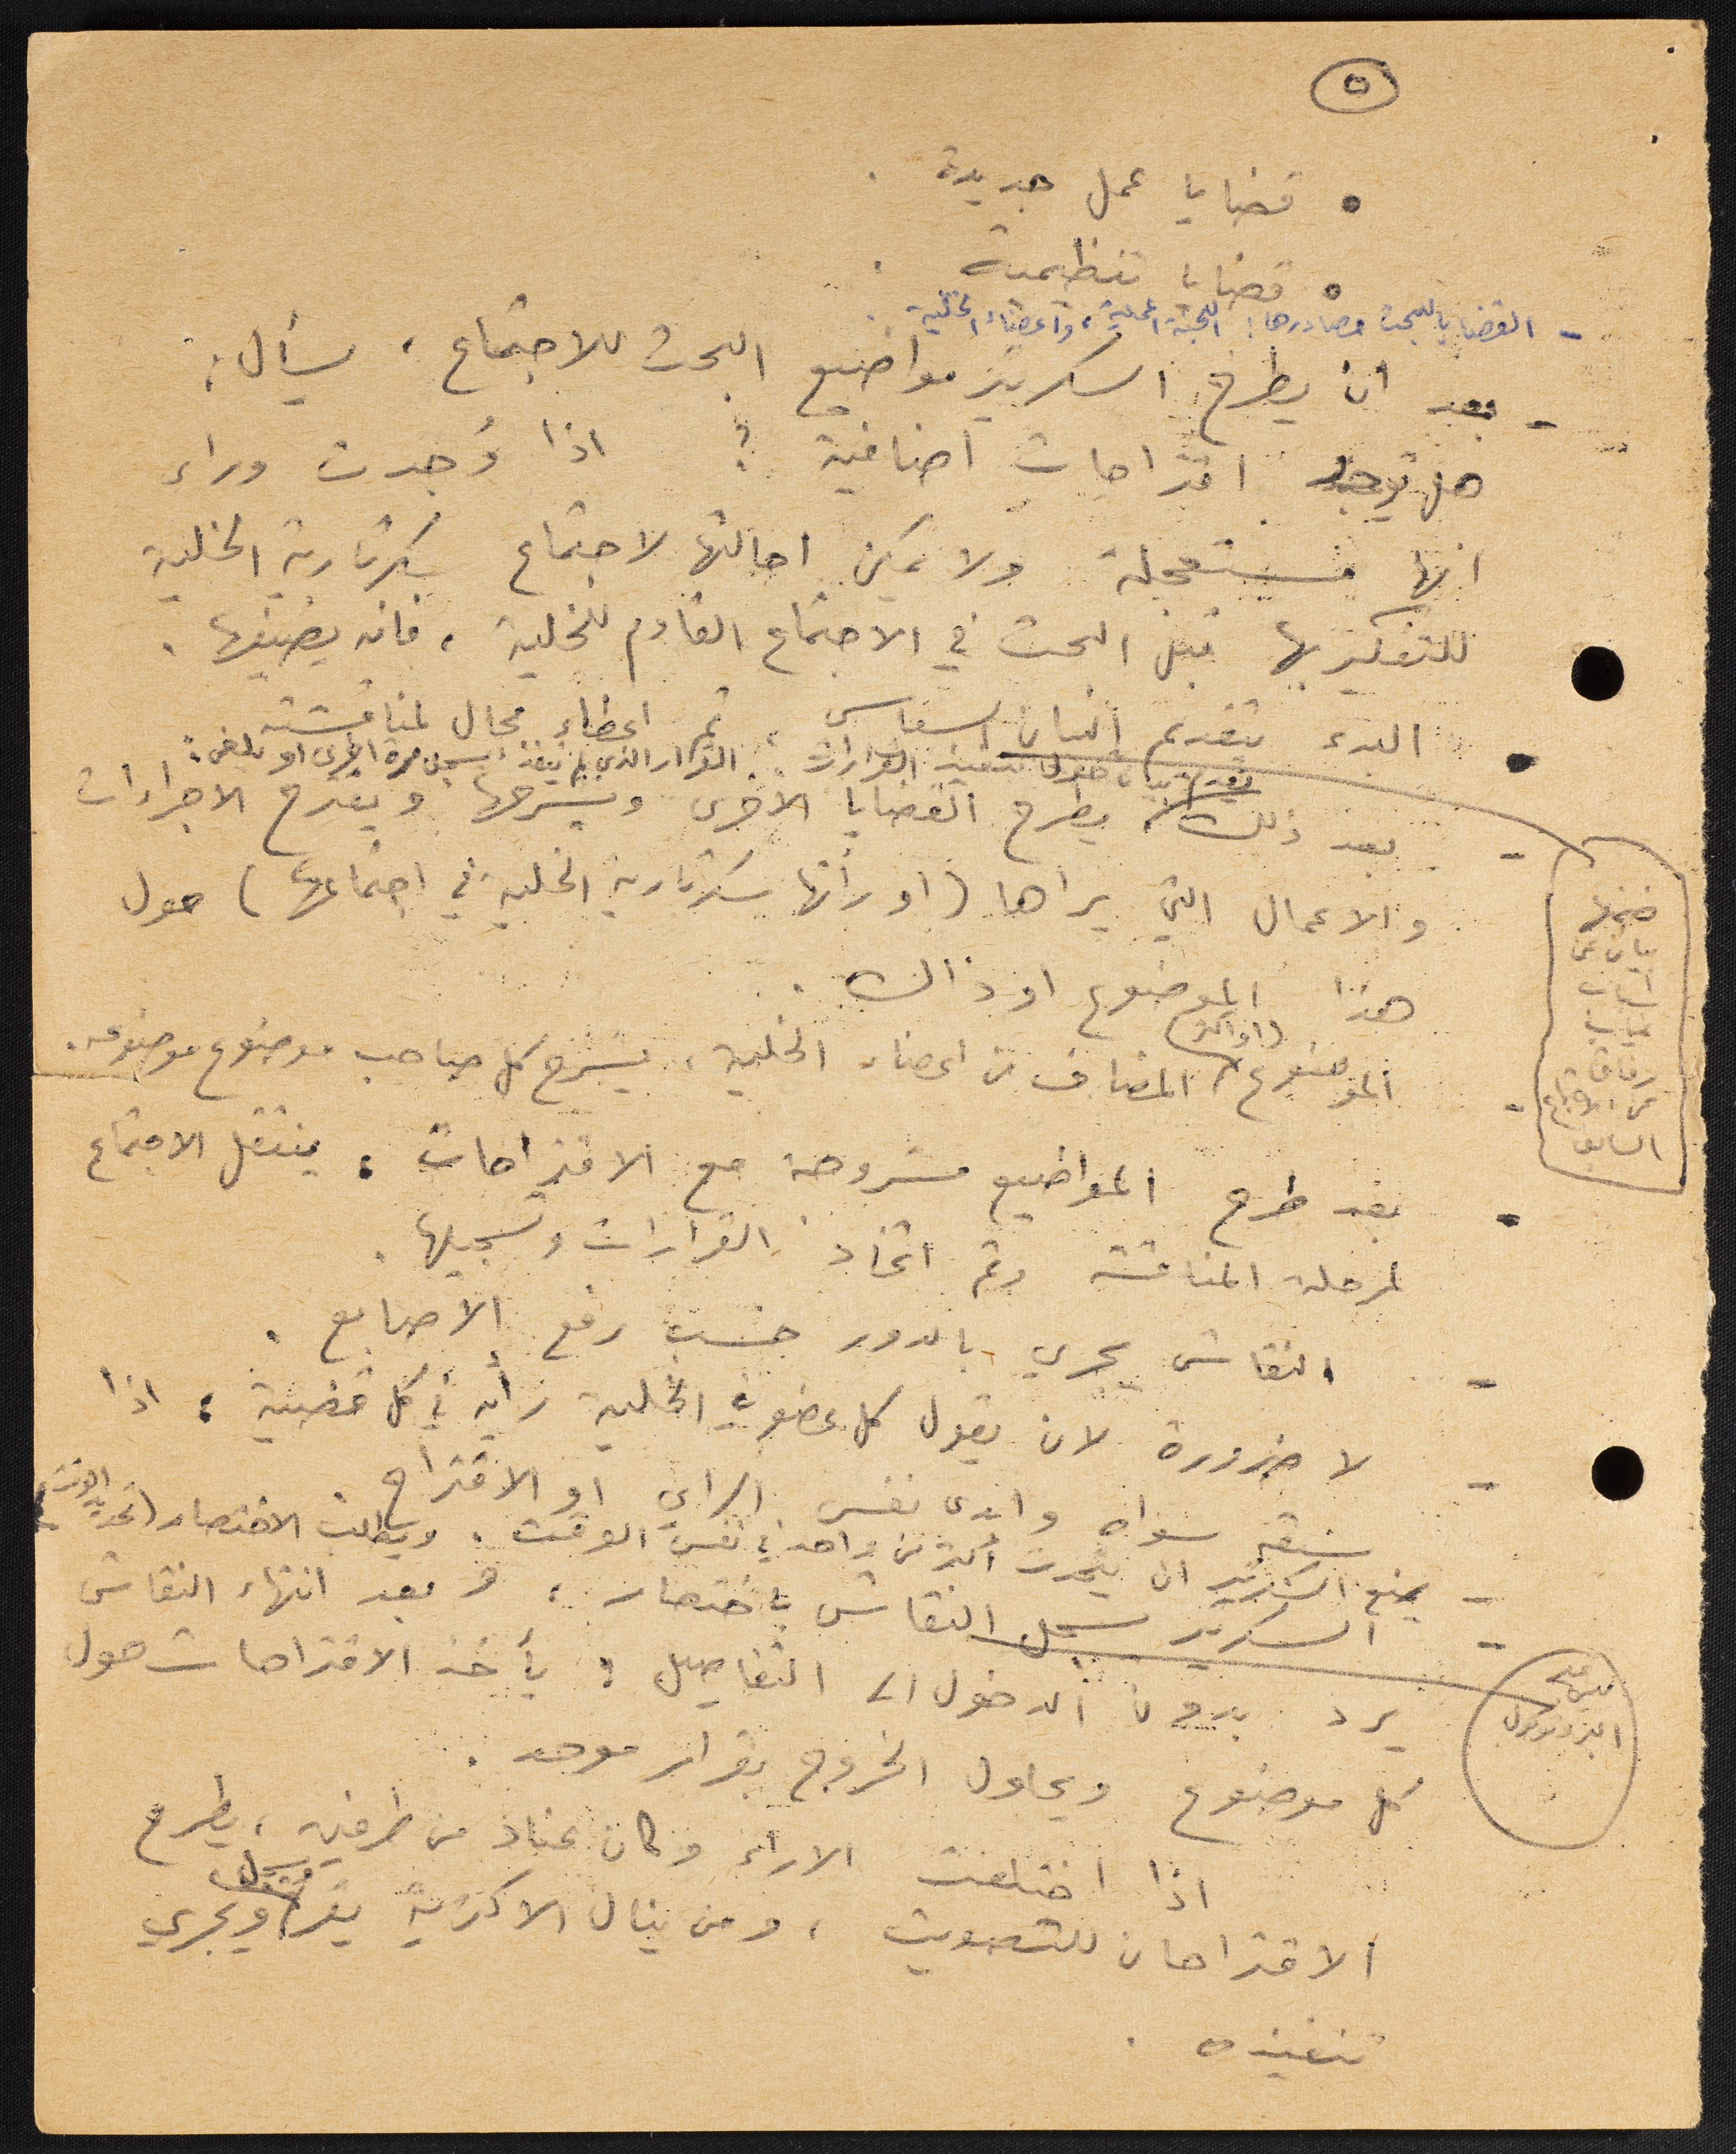 ٥
• قضايا عمل جديدة .
• قضايا تنظيمية .
- القضايا للبحث مصادرها: اللجنة المحلية، واعضاء الخلية .
- بعد ان يطرح السكرتير مواضيع البحث للاجتماع ، يسأل :
هل توجد اقتراحات اضافية ؟ اذا وُجدت وراء
انها مستعجلة ولا يمكن احالتها لاجتماع سكرتارية الخلية
للتفكير بها قبل البحث في الاجتماع القادم للخلية ، فانه يضيفها .
- البدء بتقديم البيان السياسي ، ثم اعطاء مجال لمناقشته
تقديم بيان حول تنفيذ القرارات . القرار الذي لم ينفذ يسجل مرة اخرى او يلغى .
- بعد ذلك يطرح القضايا الاخرى ويشرحها ويقترح الاجراءات
والاعمال التي يراها (او رأتها سكرتارية الخلية في اجتماعها) حول
هذا الموضوع او ذاك .
(او اكثر)
- الموضوع المضاف من اعضاء الخلية ، يشرح كل صاحب موضوع موضوعه .
- بعد طرح المواضيع مشروحة مع الاقتراحات ، ينتقل الاجتماع
لمرحلة المناقشة وثم اتخاذ القرارات وتسجيلها .
- النقاش يجري بالدور حسب رفع الاصابع .
- لا ضرورة لان يقول كل عضو في الخلية رأيه في كل قضية ؛ اذا
سبقه سواه وابدى نفس الراي او الاقتراح .
- يمنع السكرتير ان يتحدث أكثر من واحد في نفس الوقت . ويطالب الاختصار (تحديد الوقت)
- السكرتير يسجل النقاش باختصار ، وبعد انتهاء النقاش
يرد بدون الدخول الى التفاصيل ؛ يأخذ الاقتراحات حول
كل موضوع ويحاول الخروج بقرار موحد .
اذا اختلفت الاراء وكان عناد من طرفين ، يطرح
الاقتراحان للتصويت ، ومن ينال الاكثرية يقر ويسجل ويجري
تنفيذه .
ضمنها
بيان عن
اسباب
غياب
رفاق
عن الاجتماع
السابق
البروتوكول